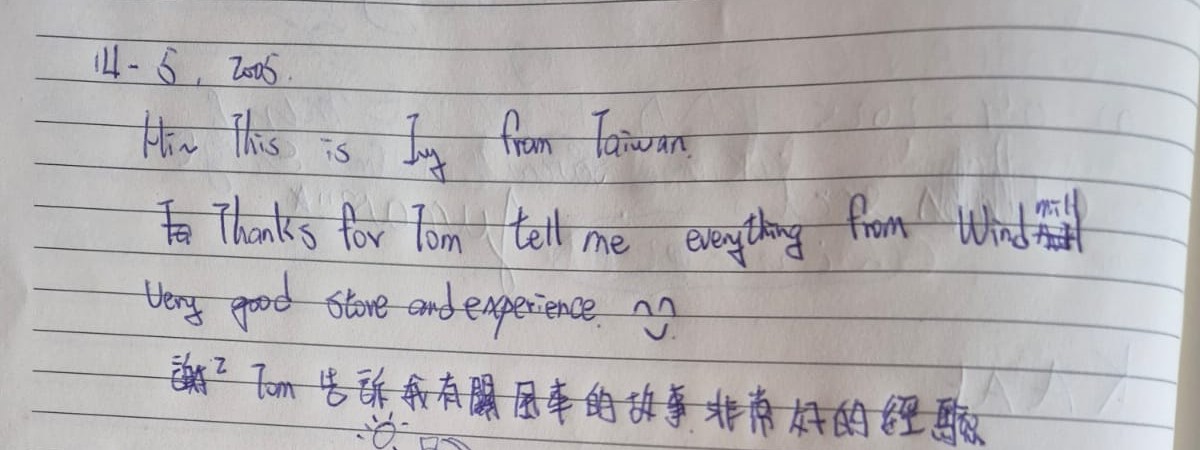 14-5, 2005.
Hi~ This is Ivy from Taiwan.
Thanks for Tom tell me everything from Windmill
Very good store and experience.
謝² Tom 告訴我有關風車的故事.非常好的經驗